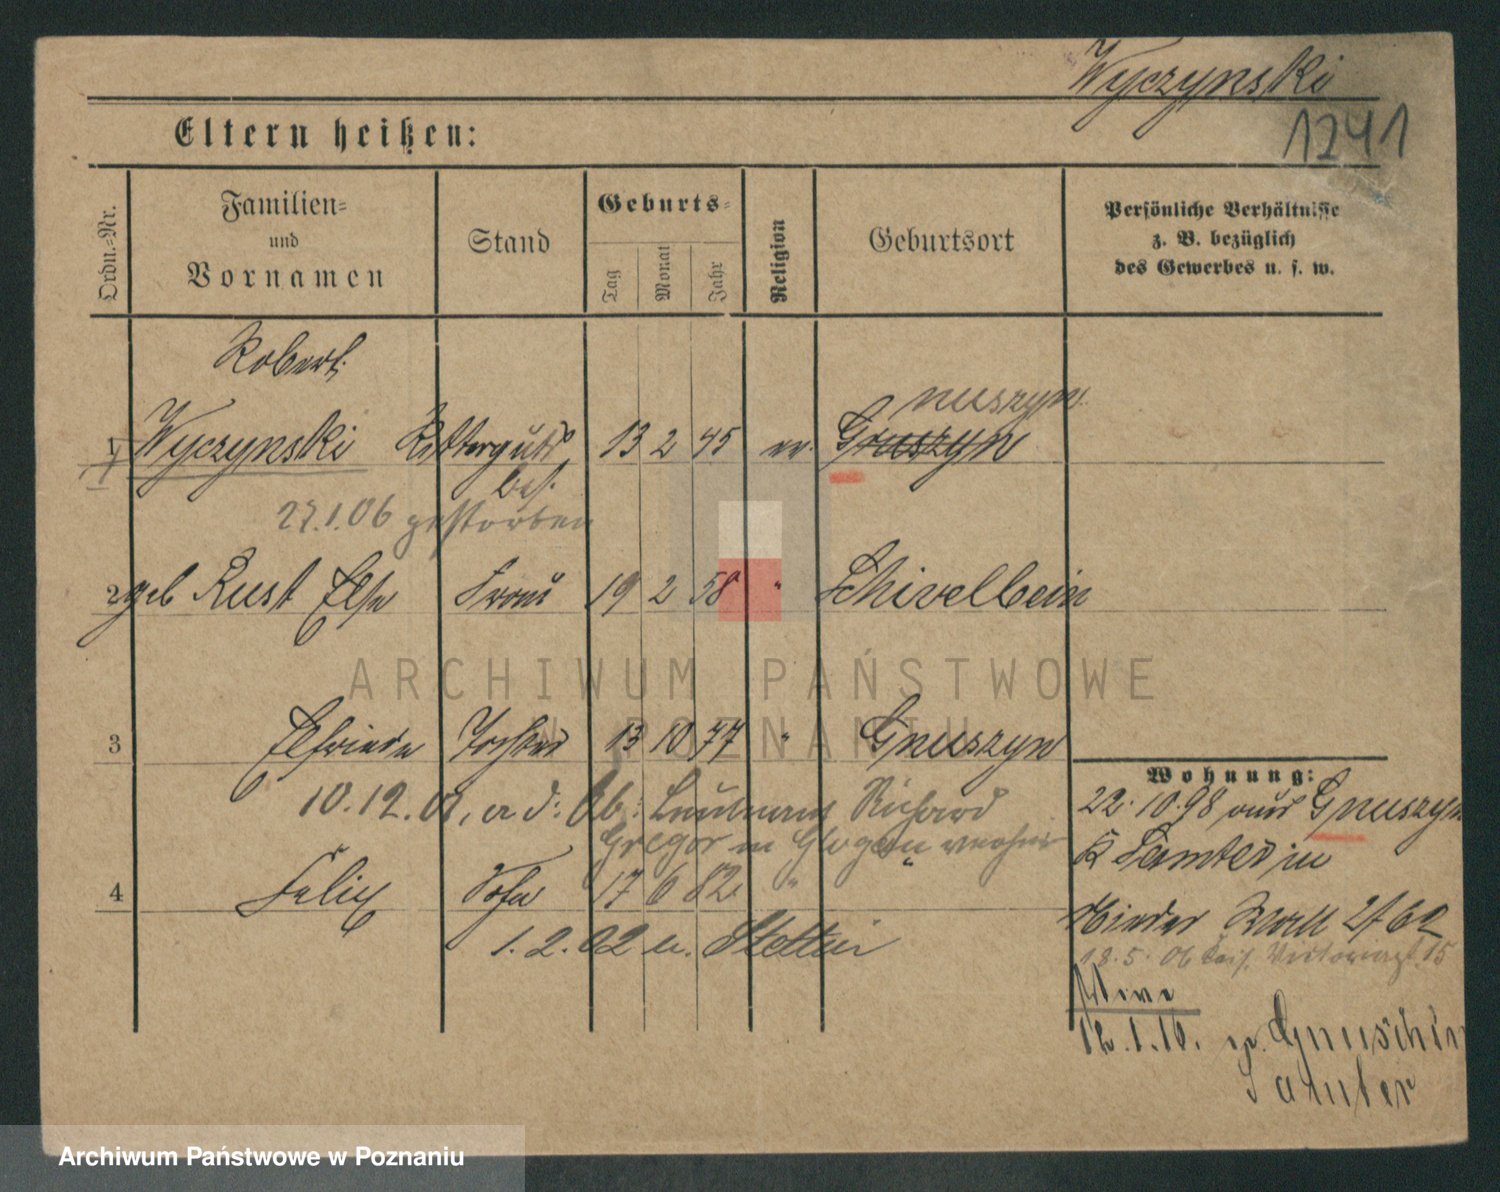 Wyczynski
1241
Eltern heißen:
Ordn.=Nr.
Familien=
und
Vornamen
Stand
Geburts=
Tag
Monat
Jahr
Religion
Geburtsort
Persönliche Verhältnisse
z. B. bezüglich
des Gewerbes u. s. w.
Robert
nuszyn
1 Wyczynski Ritterguts 13 2 45 ev. Gruszyn
bes.
27.1.06 gestorben
2 geb Rust Else Frau 19 2 58 " Schivelbein
ARCHIWUM PAŃSTWOWE
W POZNANIU
3 Elfriede Tochter 13 10 77 " Gnuszyn
Wohnung:
22. 10. 98 aus Gnuszyn
10.12. Lieutenant Richard
Gregor in Glogau
Kr Samter in
4 Felix Sohn 17 6 82 " "
Nieder Wall
1. 2. 02 n. Stettin
18. 5. 06 15
12.1.10. Gnuschin
Samter
Archiwum Państwowe w Poznaniu